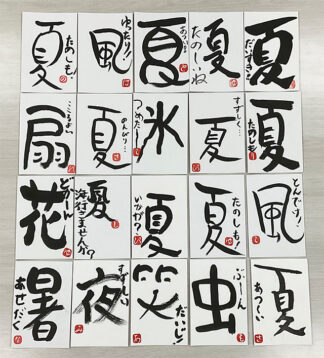 夏
たのしも!
風
ゆったり
夏
あつっ
夏
たのしいね
夏
だいすき
扇
夏
のんびり…
氷
つめた〜い
夏
すずしく…
夏
たのしもう
花
どーん
夏
海行きませんか?
夏
いかが?
夏
たのしも!
風
とんです!
暑
あせだく
夜
笑
だいじ!
虫
ぶーん
夏
あつーい